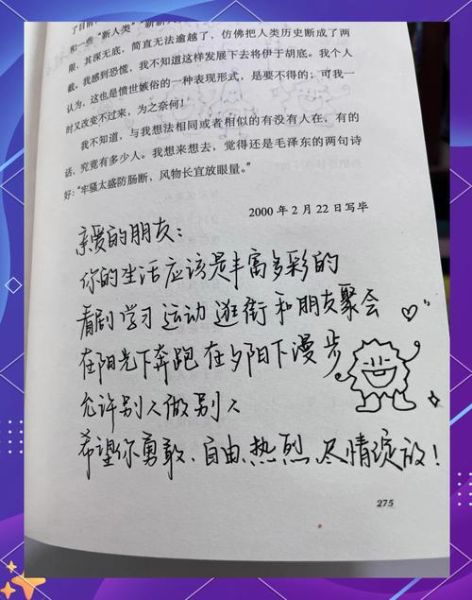 和一些“新人类”“新新人
限，其深无底，简直无法逾越了，仿佛把人类历史断成了两
截。我感到恐慌，我不知道这样发展下去将伊于胡底。我个人
认为，这也是愤世嫉俗的一种表现形式，是要不得的；可我一
时又改变不过来，为之奈何！
我不知道，与我想法相同或者相似的有没有人在，有的
话，究竟有多少人。我想来想去，觉得还是毛泽东的两句诗
好：“牢骚太盛防肠断，风物长宜放眼量。”
2000年2月22日写毕
亲爱的朋友：
你的生活应该是丰富多彩的
看剧 学习 运动 逛街 和朋友聚会
在阳光下奔跑 在夕阳下漫步
允许别人做别人
希望你勇敢、自由、热烈、尽情绽放！
275